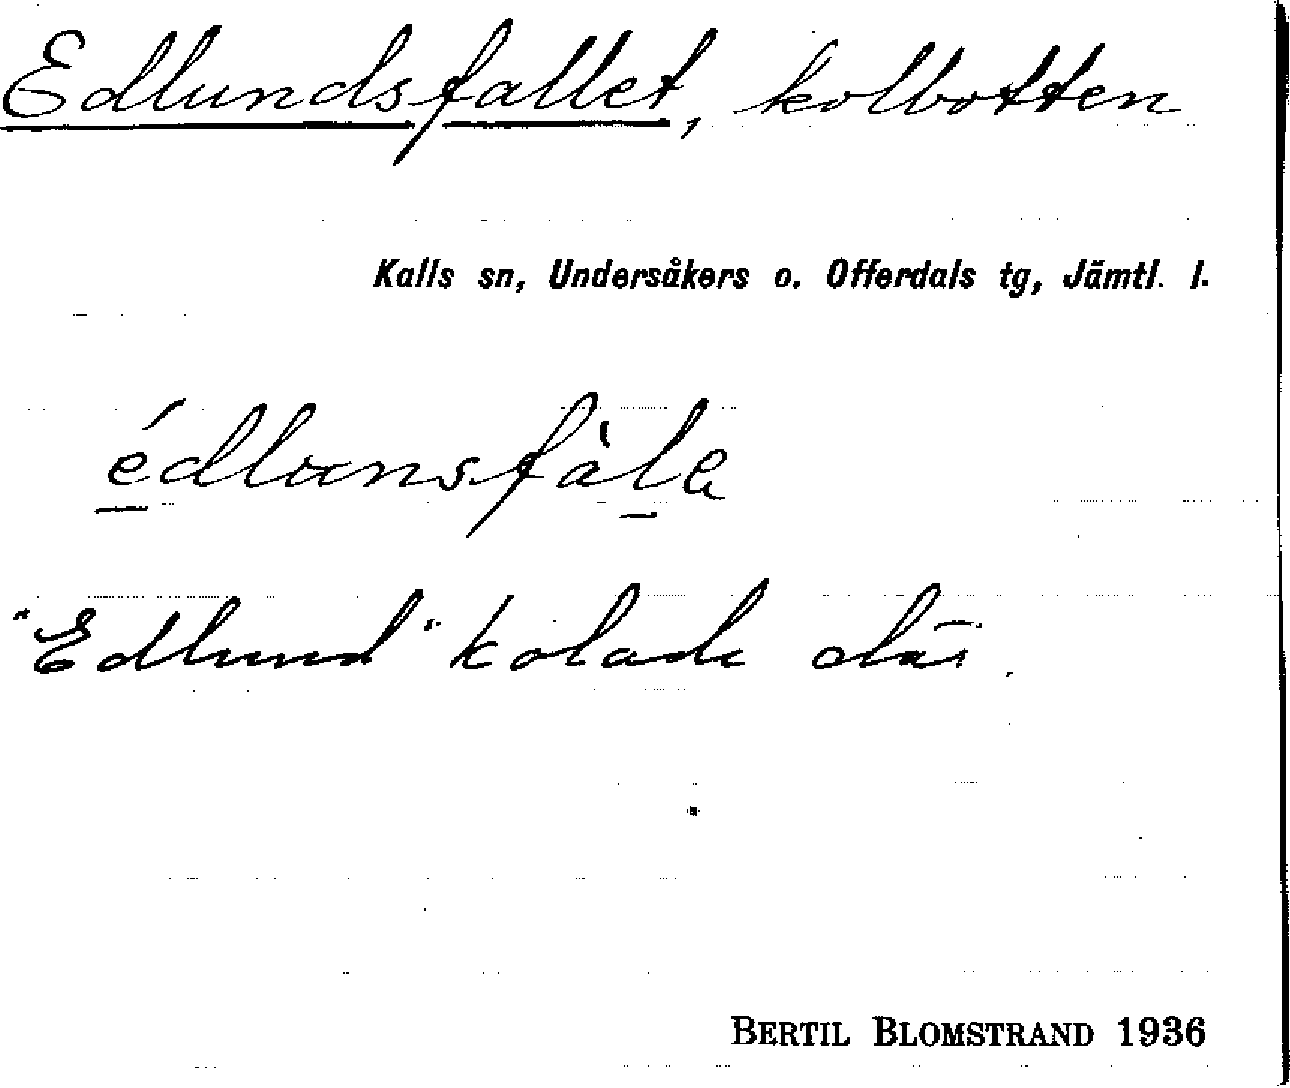 Edlundsfallet, kolbotten
Kalls sn, Undersåkers o. Offerdals tg, Jämtl. l.
édlunsfàla
"Edlund" kolade där.
BERTIL BLOMSTRAND 1936